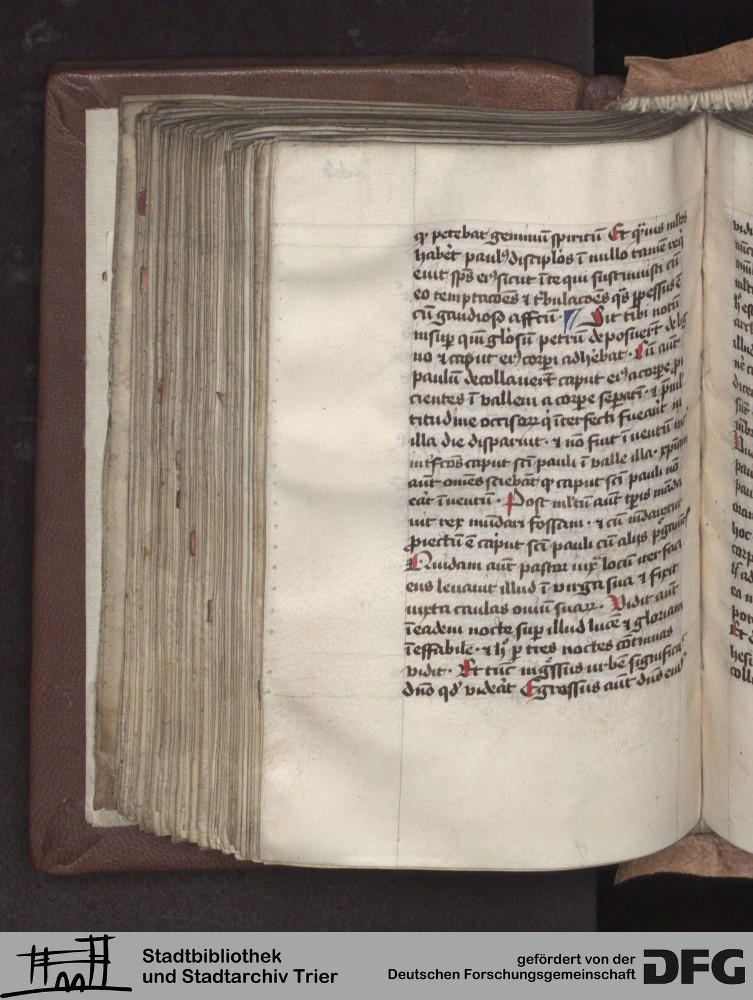 qꝫ petebat geminū spiritū Et qͣuis ml̄tos
habet̄ paulꝰ discip̄los ī nullo tame req̄
euit sp̄s eiꝰ sicut ī te qui sustinuisti cū
eo temptacōes ⁊ t̓bulacōes qͣs ꝑpessus ē
cū gaudioso affctū · Sit tibi notū
insuꝑ qm̄ gl̓osū petrū deposuer̄t de lig
no ⁊ caput eiꝰ corꝑi adhebat · Cū aut̄
paulū decollauer̄t caput eiꝰ a corꝑe ꝓi
cientes ī vallem a corꝑe seꝑati · ⁊ p̄ mul
titudine occisoꝝ q̓ īterfecti fuerāt in
illa die disparuit · ⁊ nō fuit īuentū int̓
int̓fcōs caput sc̄i pauli ī valle illa · xp̄iani
aut̄ omēs sciebāt qꝫ caput sc̄i pauli nō
eat̓ īuentū · Post ml̄tū aut̄ tp̄is māda
uit rex mūdari fossam · ⁊ cū mūdaretur
ꝓiectū ē caput sc̄i pauli cū alijs
Quidam aut̄ pastor iuxͣ locū iter faci
ens leuauit illud ī virga sua ⁊ fixit
iuxta caulas ouiū suaꝝ · Vidit aut̄
ī eadem nocte suꝑ illud lucē ⁊ gloriam
īeffabile · ⁊ h̓ ꝑ tres noctes cōtinuas
vidit · Et tūc īgs̓sus urbē significa
dn̄o qd̓ videāt Egressus aut̄ dn̄s eiꝰ
Stadtbibliothek
und Stadtarchiv Trier
gefördert von der
Deutschen Forschungsgemeinschaft
DFG